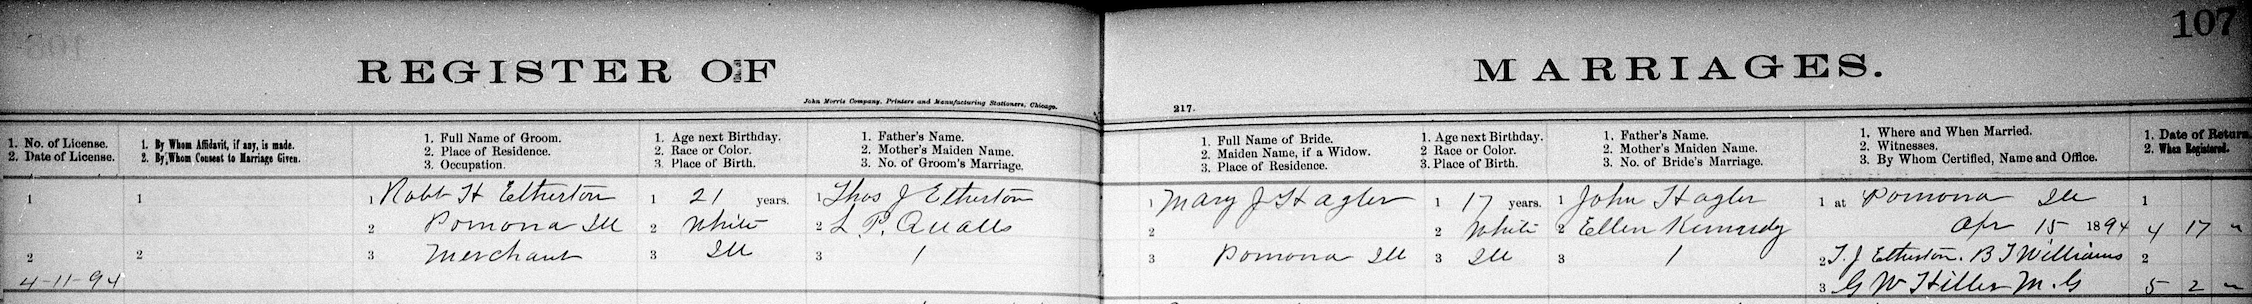 107
REGISTER OF MARRIAGES.
John Morris Company, Printers and Manufacturing Stationers, Chicago.
217.
1. No. of License.
2. Date of License.
1. By Whom Affidavit, if any, is made.
2. By Whom Consent to Marriage Given.
1. Full Name of Groom.
2. Place of Residence.
3. Occupation.
1. Age next Birthday.
2. Race or Color.
3. Place of Birth.
1. Father's Name.
2. Mother's Maiden Name.
3. No. of Groom's Marriage.
1. Full Name of Bride.
2. Maiden Name, if a Widow.
3. Place of Residence.
1. Age next Birthday.
2. Race or Color.
3. Place of Birth.
1. Father's Name.
2. Mother's Maiden Name.
3. No. of Bride's Marriage.
1. Where and When Married.
2. Witnesses.
3. By Whom Certified, Name and Office.
1. Date of Return.
2. When Registered.
1
2
4-11-94
1
2
1 Robt H Etherton
2 Pomona Ill
3 Merchant
1 21 years.
2 White
3 Ill
1 Thos J Etherton
2 L. P. Qualls
3 1
1 Mary J Hagler
2
3 Pomona Ill
1 17 years.
2 White
3 Ill
1 John Hagler
2 Ellen Kennedy
3 1
1 at Pomona Ill
Apr 15 1894
2 T. J Etherton. B J Williams
3 G W Hiller M. G
1
4 17 "
2
5 2 "